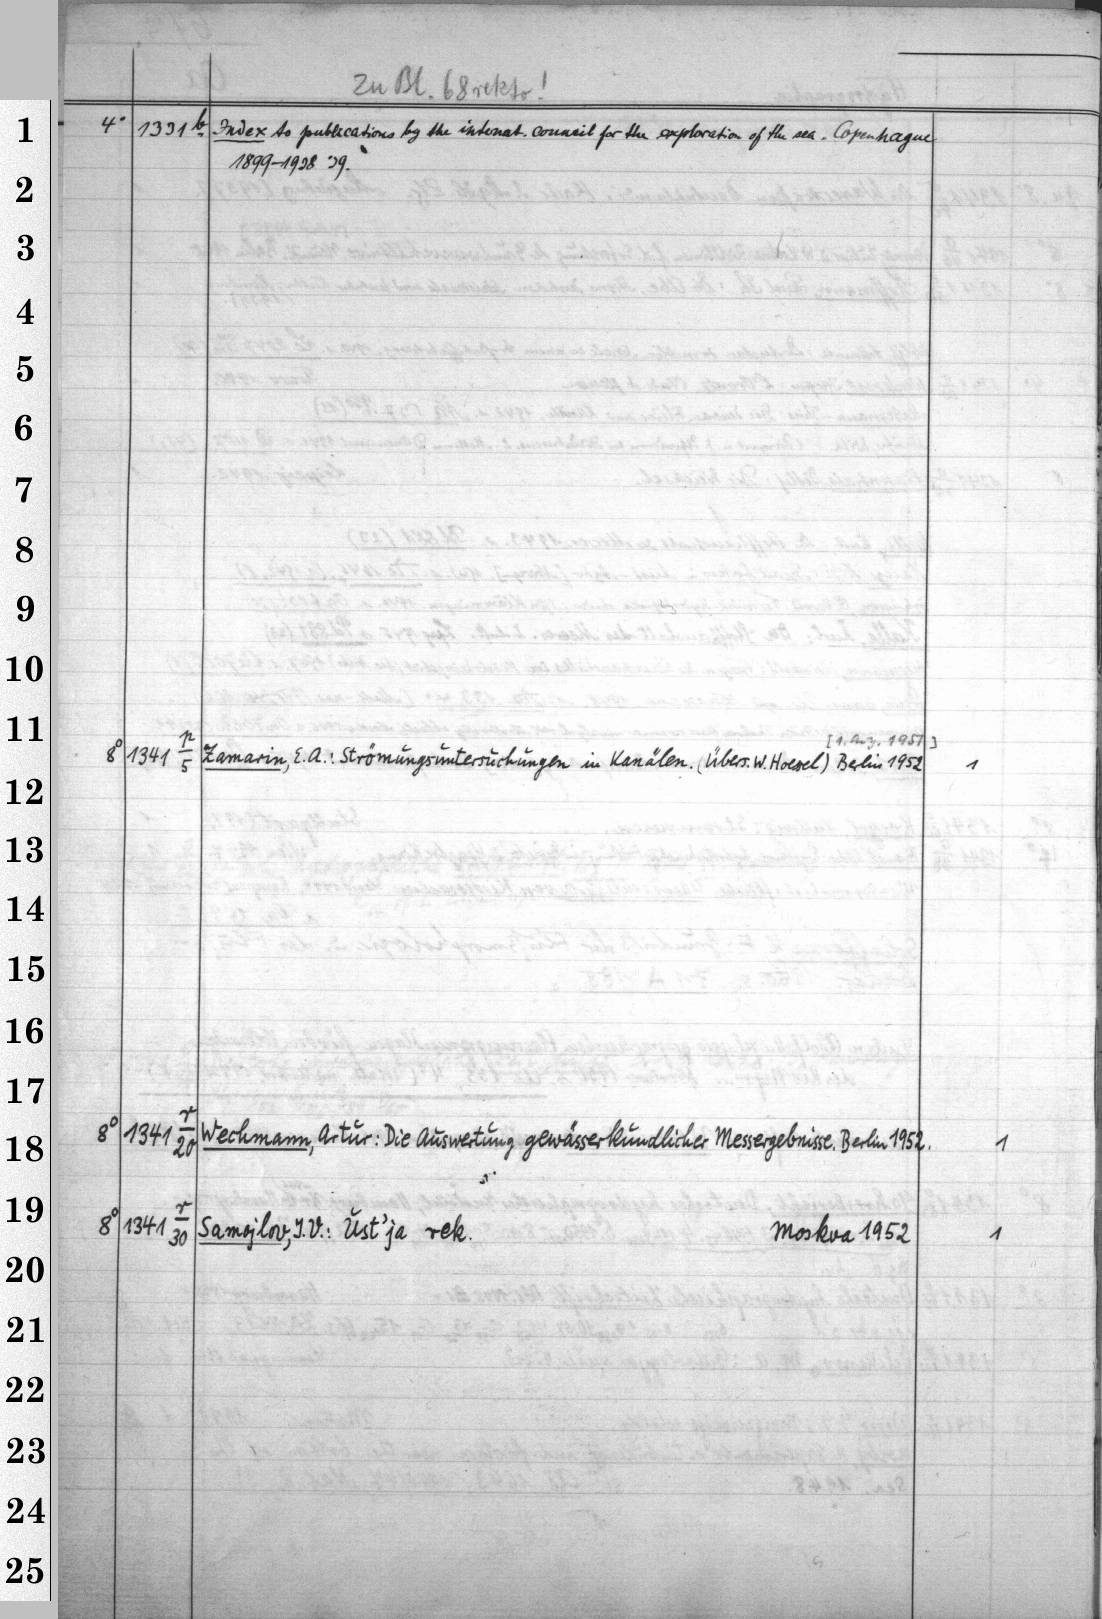 Zu Bl. 68 rekto!
1 4° 1331 b Index to publications by the internat. council for the exploration of the sea. Copenhague
1899–1938 '39.
2
3
4
5
6
7
8
9
10
11 [1. Aufl. 1951]
8° 1341 p/5 Zamarin, E.A.: Strömungsuntersuchungen in Kanälen. (Übers. W. Hoesel) Berlin 1952 1
12
13
14
15
16
17
18 8° 1341 r/20 Wechmann, Artur: Die Auswertung gewässerkundlicher Messergebnisse. Berlin 1952. 1
19 8° 1341 r/30 Samojlov, I.V.: Ust'ja rek. Moskva 1952 1
20
21
22
23
24
25